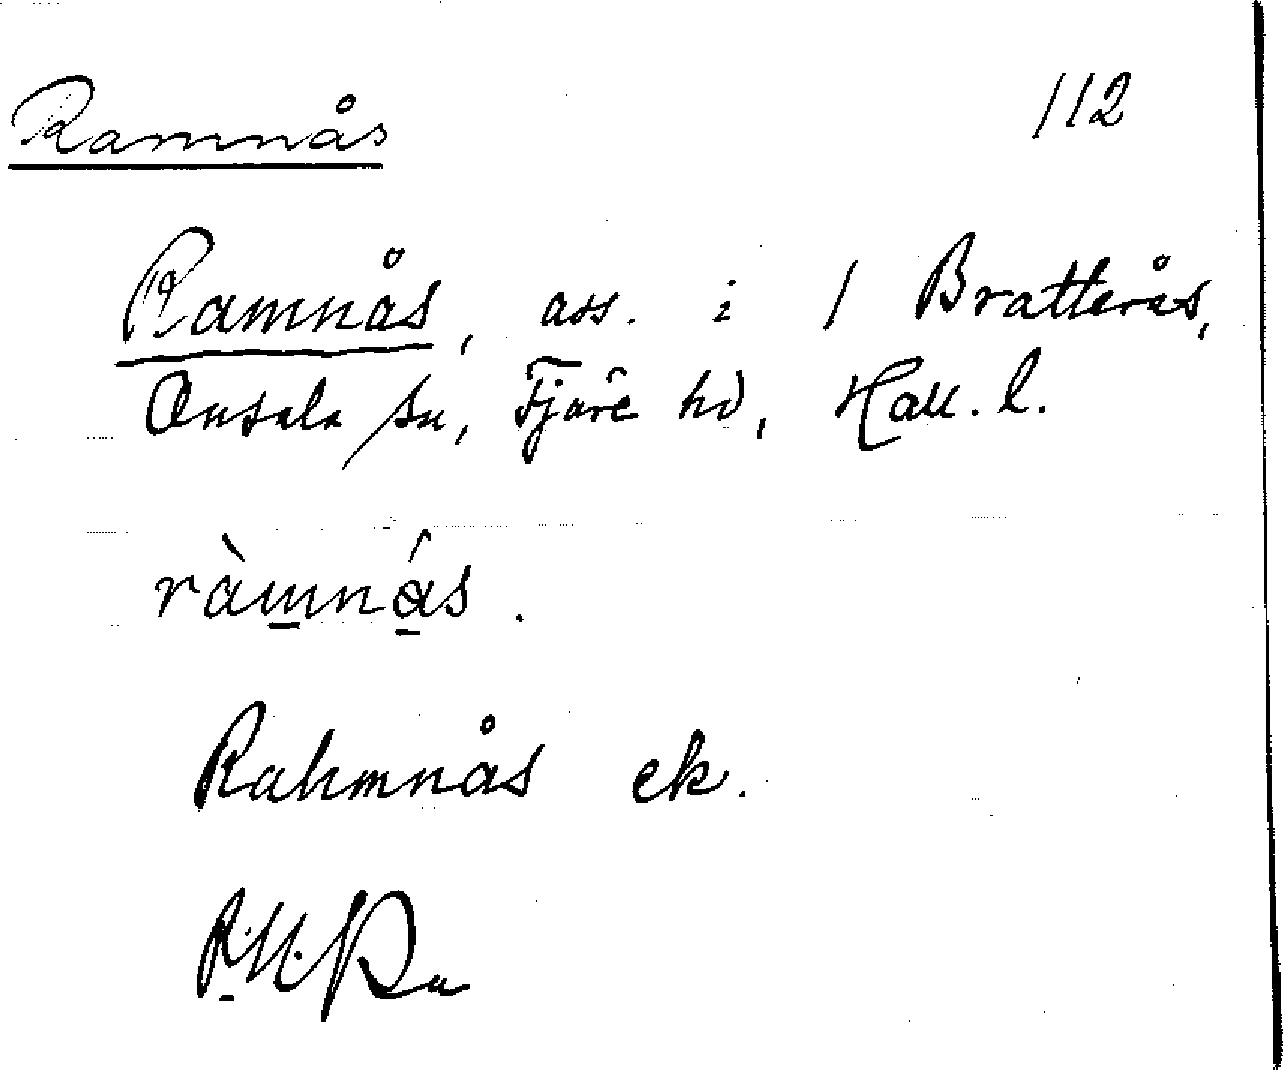 Ramnås 112
Ramnås, ass. i 1 Bratterås,
Onsala sn, Fjäre hd, Hall. l.
ràmnás.
Rahmnås ek.